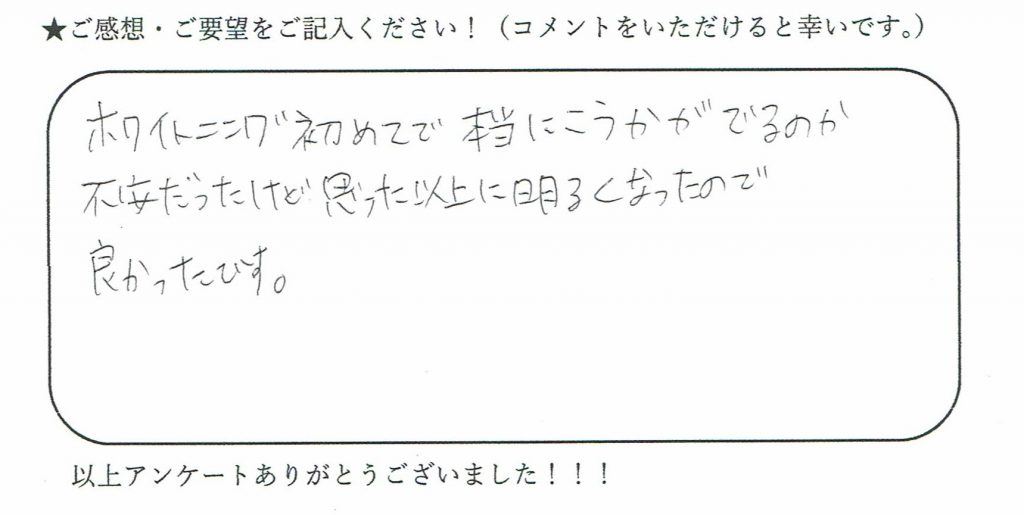 ★ご感想・ご要望をご記入ください！（コメントをいただけると幸いです。）
ホワイトニング初めてで本当にこうかがでるのか
不安だったけど思った以上に明るくなったので
良かったです。
以上アンケートありがとうございました！！！